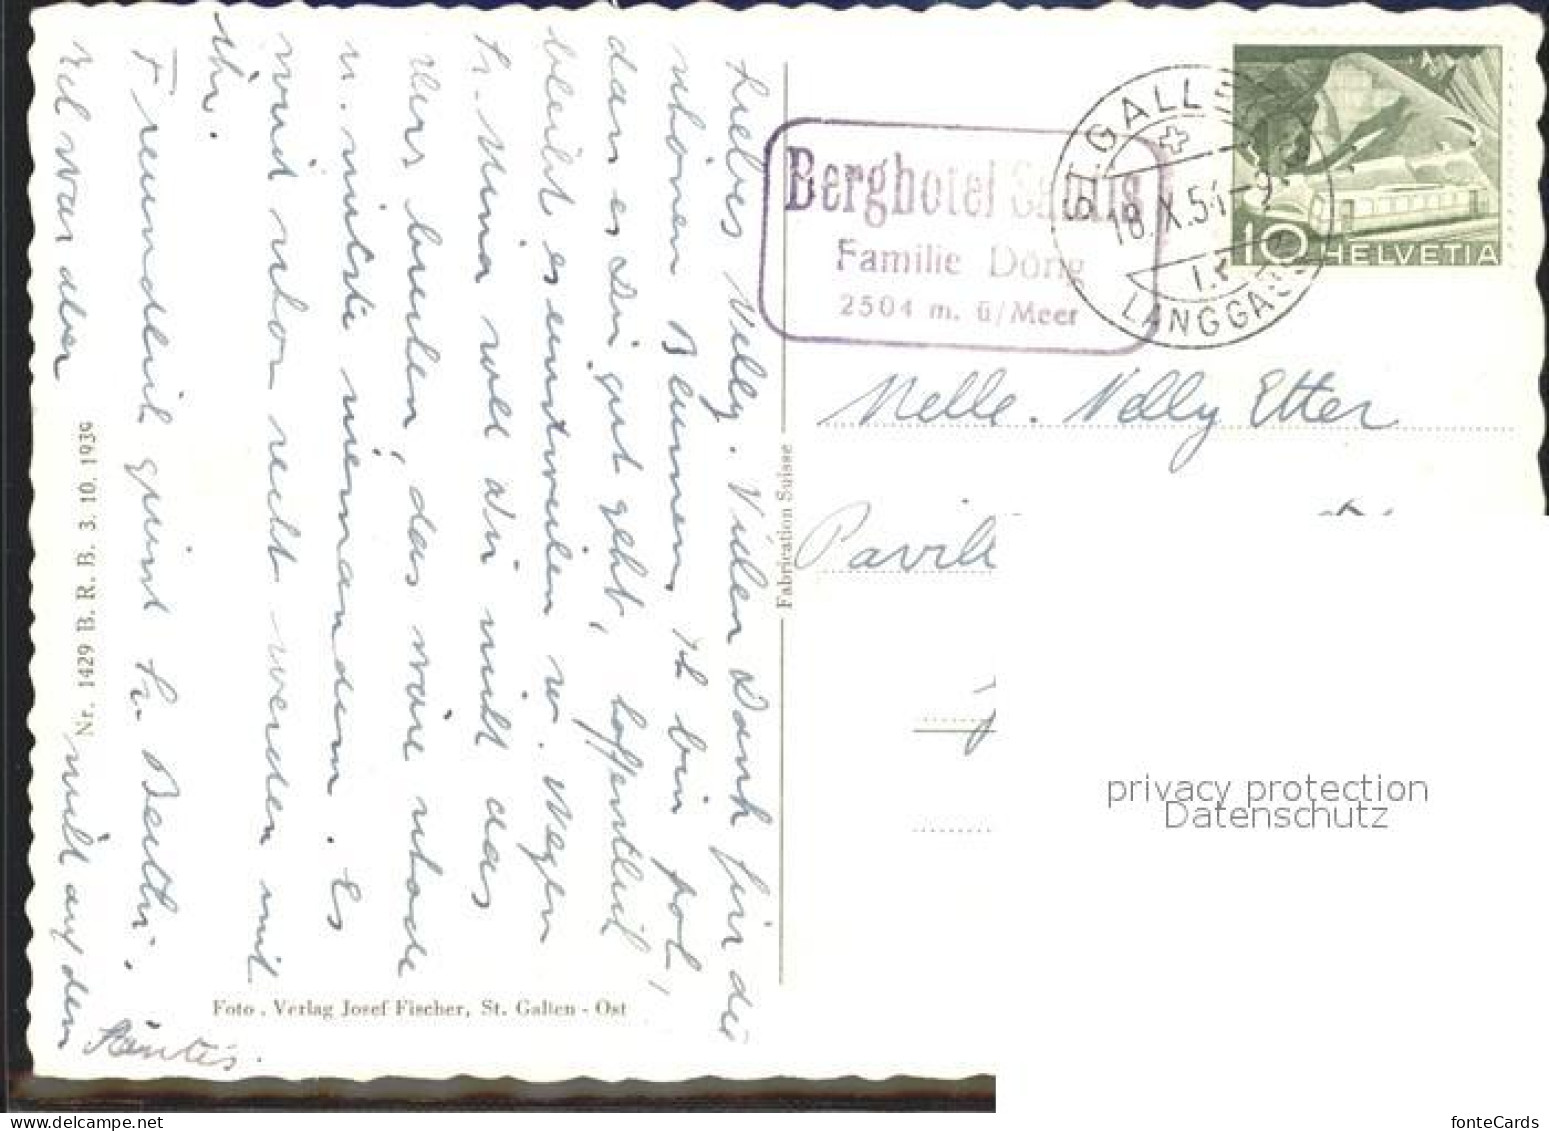 Liebes Nelly. Vielen Dank für die
schönen Blumen. Ich bin froh,
dass es Dir gut geht, hoffentlich
bleibt es einstweilen so. Wegen
Fr. Mina soll Dir nicht das
Herz bluten, das wäre schade
u. nützte niemandem. Es
wird schon recht werden mit
ihr.
Freundlich grüsst Fr. Beuthi.
Ich war aber
nicht auf dem
Säntis.
Nr. 1429 B. R. B. 3. 10. 1939
Foto. Verlag Josef Fischer, St. Gallen - Ost
Fabrication Suisse
Berghotel Säntis
Familie Dörig
2504 m. ü/Meer
ST. GALLEN
18. X. 54 - 9
LANGGASSE
10 HELVETIA
Melle. Nelly Etter
Pavill
privacy protection
Datenschutz
fonteCards
www.delcampe.net